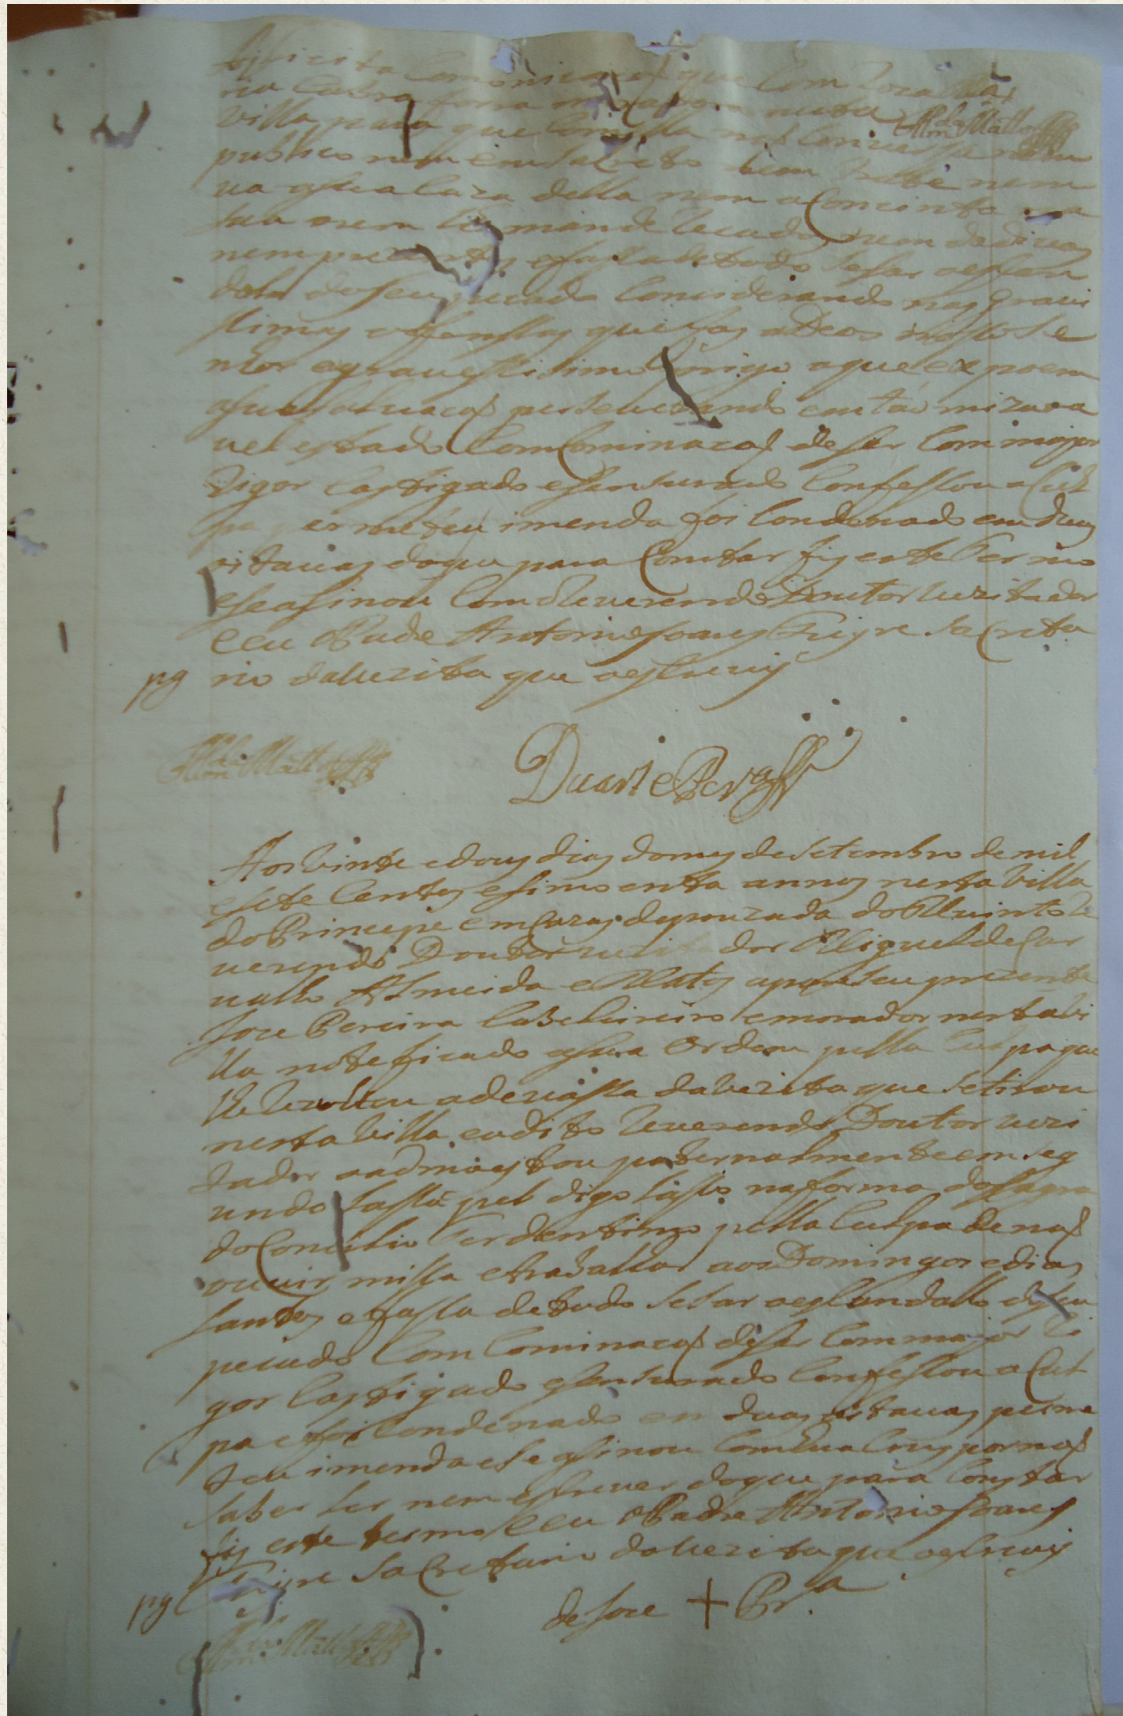 illicita comonicação que com
na Cabra forra moradora nesta
villa para que com ella não converse nem em
publico nem em secreto nem trate nem
va a sua caza della nem a Concinta na
sua nem lhe mande recados nem dadivas
nem prezentes e fassa de todo sesar o escan
dolo do seu pecado considerando nas gravi
ssimas offenssas que fas a Deos nosso Se
nhor e gravissimo Perigo a que expoem
a sua salvacaõ perseverando em taõ mizara
vel estado com Cominacaõ de ser com major
rigor castigado e sensurado confessou a Cul
pa prometeu imenda foi condenado em duas
oitavas do que para Constar fis este Termo
e se asinou com o Reverendo Doutor vezitador
e eu o Padre Antonio Soares Freyre Secreta
pg rio da vezita que o escrevy
Mattos
Duarte Per
Aos vinte e dous dias do mes de Setembro de mil
e sete centos e simcoenta annos nesta Villa
do Principe em Cazas de pouzada do M uinto Re
verendo Doutor vezitador Miguel de Car
valho Almeida e Matos apareseu prezente
Joze Pereira Cabeleireiro e morador nesta vi
lla noteficado a sua ordem pella culpa que
lhe rezultou a devassa da vezita que se tirou
nesta villa e o dito Reverendo Doutor vezi
tador o admoystou paternalmente em seg
undo lapso na forma do sagra
do Concilio Terdentino pella culpa de naõ
ouvir missa e trabalhar aos Domingos e dias
santos e fassa de todo sesar o escandallo de seu
pecado com cominacaõ de ser com major ri
gor castigado e sensurado confessou a Cul
pa e foi condenado em duas oitavas prome
teu imenda e se asinou com hua crus por naõ
saber ler nem escrever do que para constar
fis este termo e eu o Padre Antonio Soares
pg Freire Secretario da vezita que o escrevy
de Joze + Pr.ª
Mattos